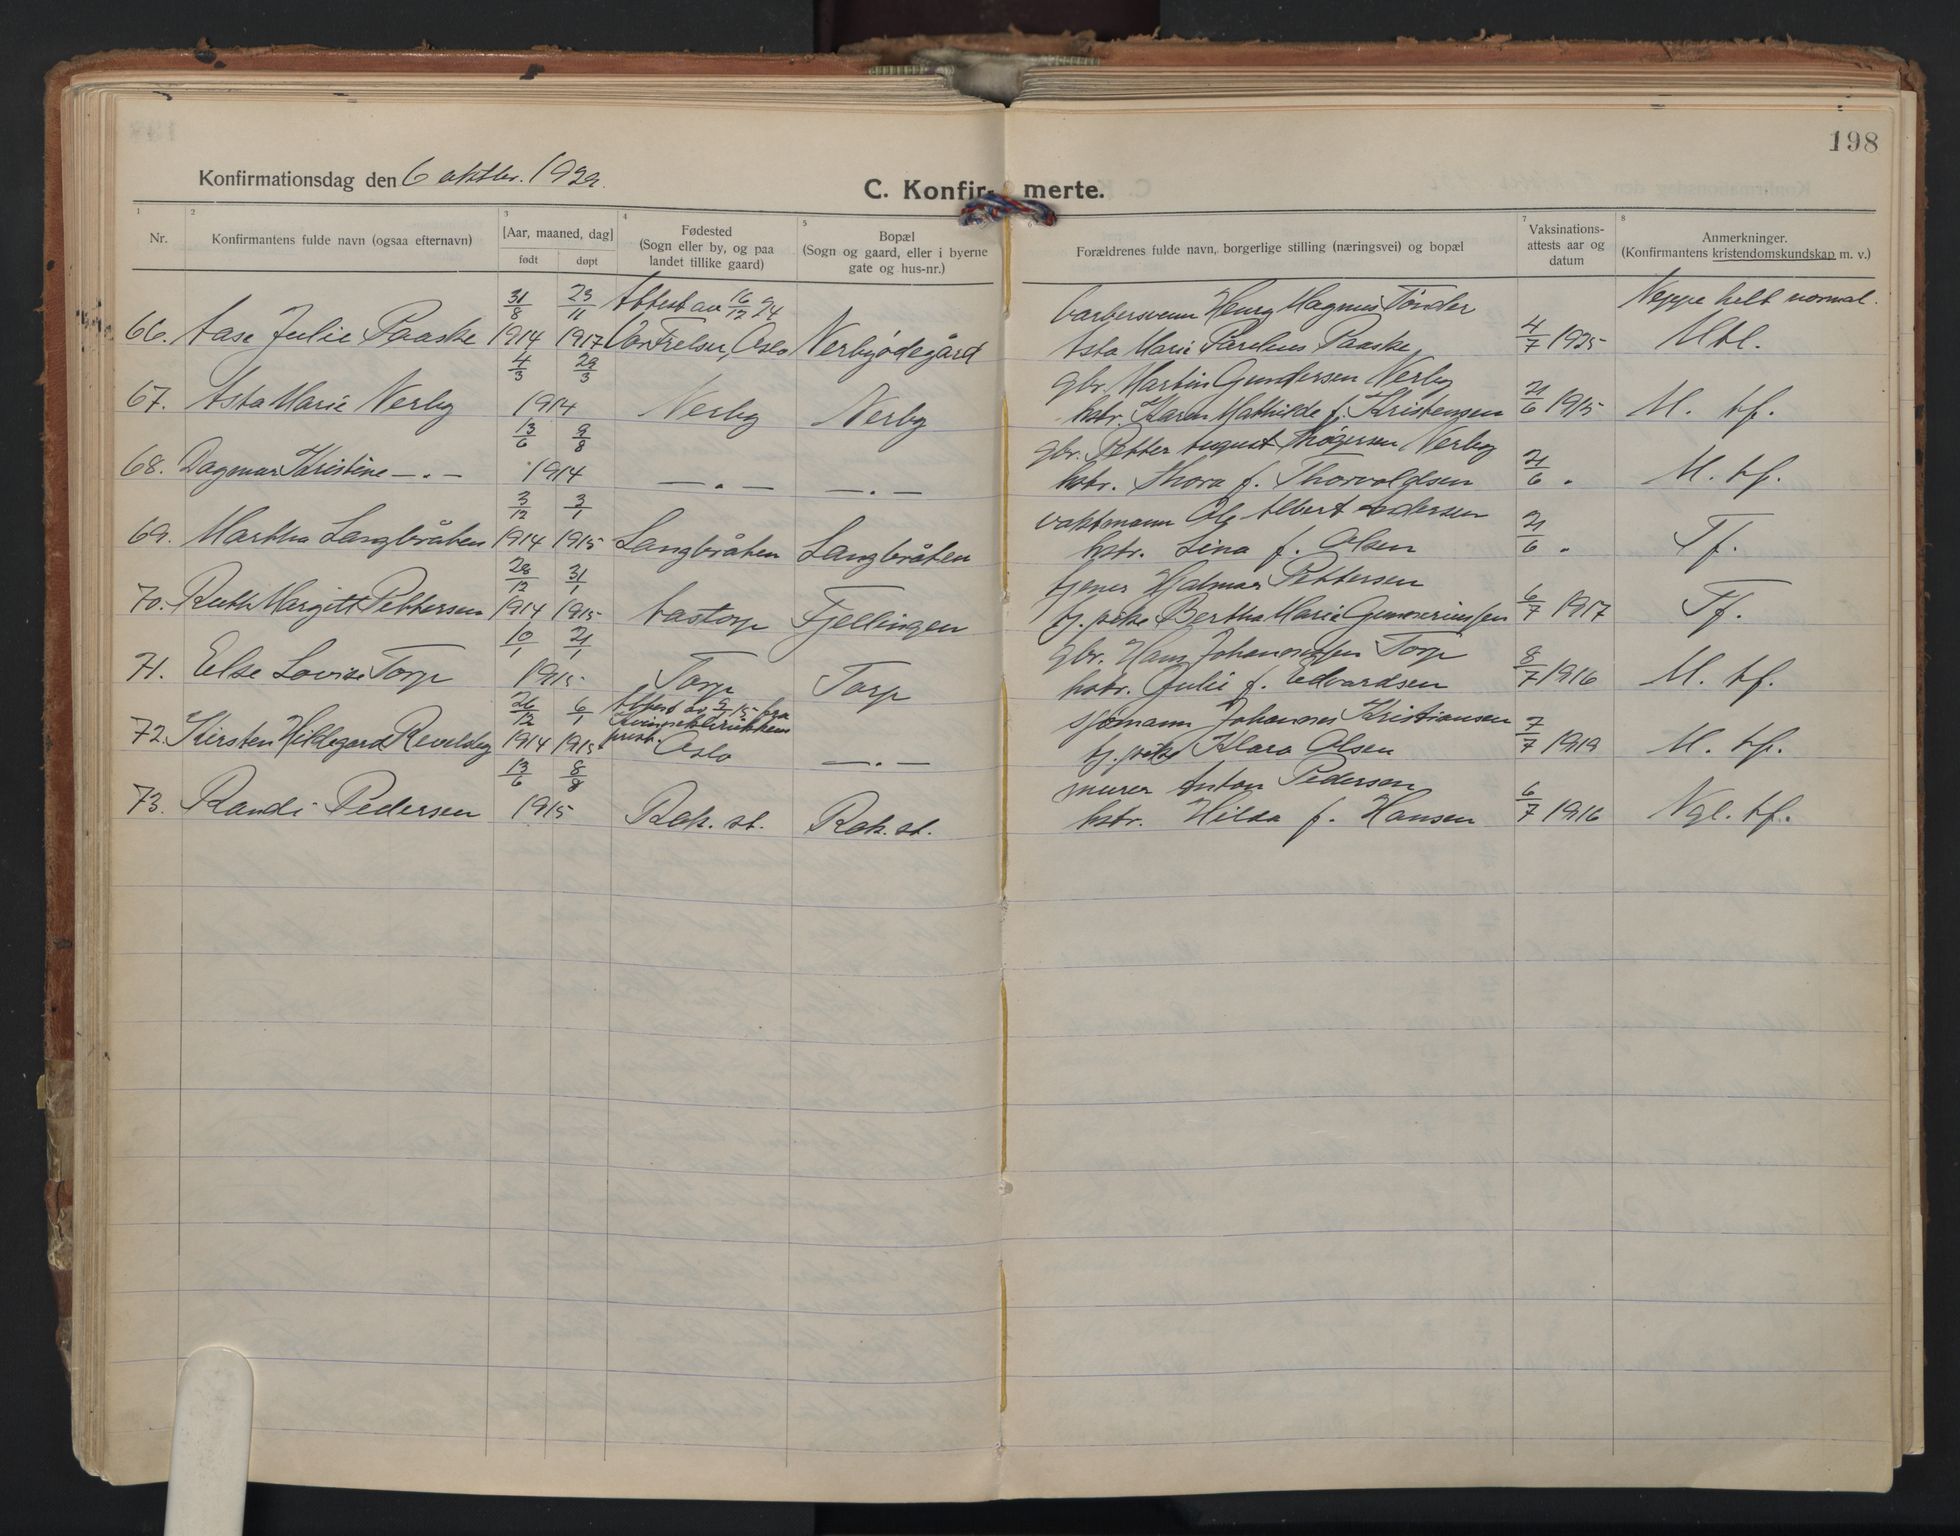 198
Konfirmationsdag den 6 oktbr. 1929.
C. Konfir- merte.
1 2 3 4 5 6 7 8
Nr.
Konfirmantens fulde navn (ogsaa efternavn)
[Aar, maaned, dag]
født døpt
Fødested
(Sogn eller by, og paa
landet tillike gaard)
Bopæl
(Sogn og gaard, eller i byerne
gate og hus-nr.)
Forældrenes fulde navn, borgerlige stilling (næringsvei) og bopæl
Vaksinations-
attests aar og
datum
Anmerkninger.
(Konfirmantens kristendomskundskap m. v.)
31/8 23/11 Attest av 16/12 24 barbersvenn Henry Magnus Tønder Neppe helt normal.
66. Aase Julie Paaske 1914 1917 Vor Frelser, Oslo Nerbyødegård Asta Marie Paaske 4/7 1925 Mtl.
4/3 29/3 gbr. Martin Gundersen Nerby
67. Asta Marie Nerby 1914 Nerby Nerby hstr. Karen Mathilde f. Kristensen 21/6 1915 M. tf.
13/6 9/8 gbr. Petter August Thøgersen Nerby
68. Dagmar Kristine —.— 1914 —.— —.— hstr. Thora f. Thorvaldsen 21/6 " M. tf.
3/12 3/1 vaktmann Ole Albert Andersen
69. Martha Langbråten 1914 1915 Langbråten Langbråten hstr. Lina f. Olsen 21/6 " Tf.
28/12 31/1 tjener Hjalmar Pettersen
70. Ruth Margitt Pettersen 1914 1915 Aastorp Fjellingen tj. pike Bertha Marie Gunneriussen 6/7 1917 Tf.
10/1 21/1 gbr. Hans Johannessen Torp
71. Else Lovise Torp 1915 Torp Torp hstr. Julie f. Edvardsen 8/7 1916 M. tf.
26/12 6/1 Attest av 5/1 15 fra sjømann Johannes Kristiansen
Kvinneklinikkens
prest.
72. Kirsten Hildegard Revelsby 1914 1915 Oslo —.— tj. pike Klara Olsen 7/7 1919 M. tf.
13/6 8/8 murer Anton Pedersen
73. Randi Pedersen 1915 Rak. st. Rak. st. hstr. Hilda f. Hansen 6/7 1916 Ngl. tf.